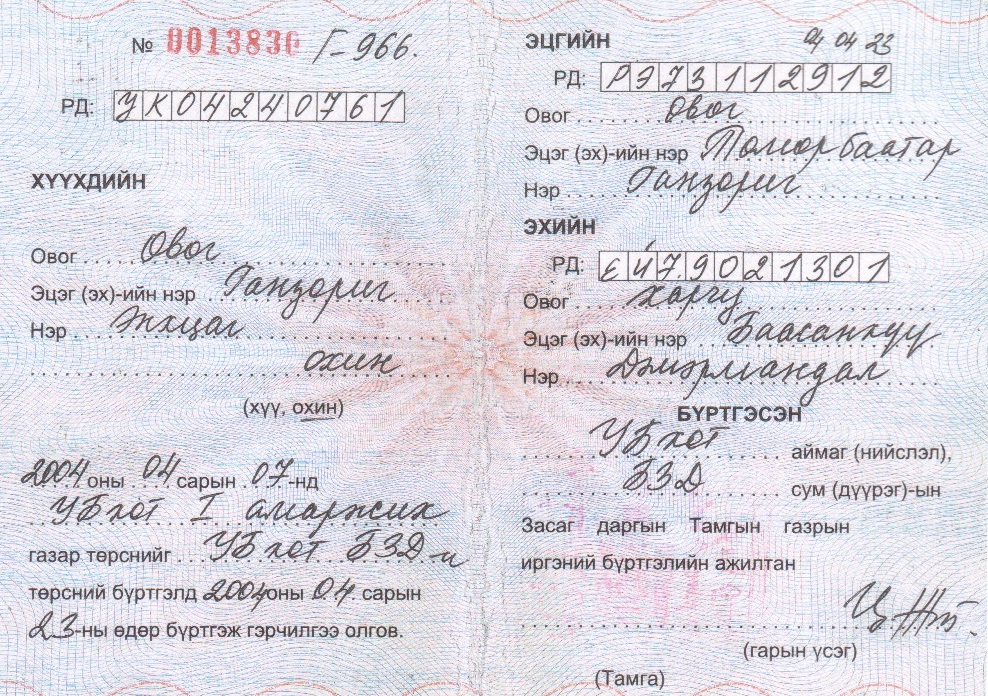 № 0013830 Г-966.
РД: УК04240761
ХҮҮХДИЙН
Овог Овог
Эцэг (эх)-ийн нэр Ганзориг
Нэр
охин
(хүү, охин)
2004 оны 04 сарын 07-нд
УБ хот I амаржих
газар төрснийг УБ хот БЗД-н
төрсний бүртгэлд 2004 оны 04. сарын
23-ны өдөр бүртгэж гэрчилгээ олгов.
ЭЦГИЙН 04 04 23
РД: РЭ73112912
Овог Овог
Эцэг (эх)-ийн нэр Төмөрбаатар
Нэр Ганзориг
ЭХИЙН
РД: ЕЙ79021301
Овог Харгу
Эцэг (эх)-ийн нэр Баасанхүү
Нэр Дэмэрмандал
БҮРТГЭСЭН
УБ хот аймаг (нийслэл),
БЗД сум (дүүрэг)-ын
Засаг даргын Тамгын газрын
иргэний бүртгэлийн ажилтан
(гарын үсэг)
(Тамга)